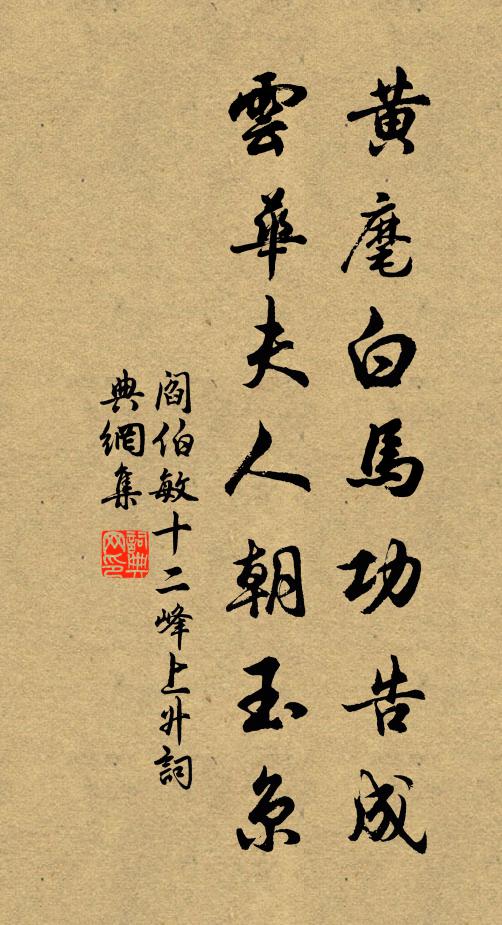 黄麾白馬功告成
雲華夫人朝玉京
閻伯敏十二峰上升詞
典網集
詞典
网印